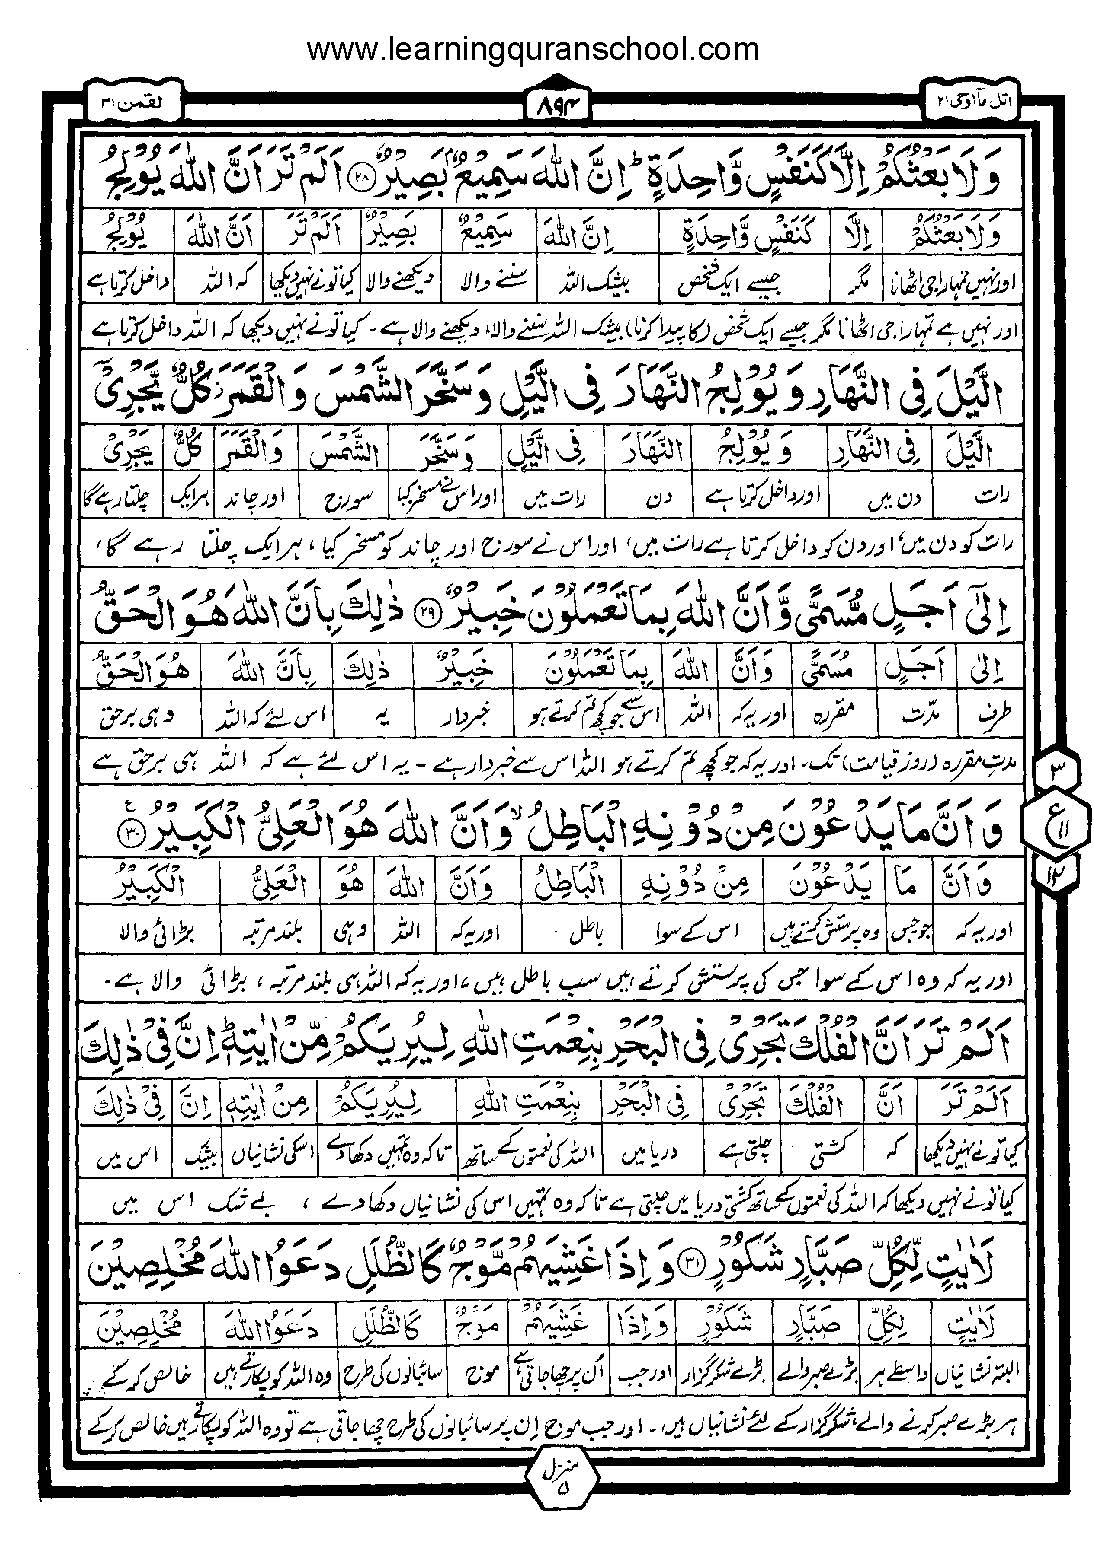 www.learningquranschool.com
اتل مآاوحی ۲۱
۸۹۴
لقمٰن ۳۱
وَلَا بَعْثُكُمْ اِلَّا كَنَفْسٍ وَّاحِدَةٍ ؕ اِنَّ اللّٰهَ سَمِيْعٌۢ بَصِيْرٌ ۲۸ اَلَمْ تَرَ اَنَّ اللّٰهَ يُوْلِجُ
وَلَا بَعْثُكُمْ اِلَّا كَنَفْسٍ وَّاحِدَةٍ اِنَّ اللّٰهَ سَمِيْعٌۢ بَصِيْرٌ اَلَمْ تَرَ اَنَّ اللّٰهَ يُوْلِجُ
اور نہیں تمہارا جی اٹھانا مگر جیسے ایک شخص بیشک اللہ سننے والا دیکھنے والا کیا تونے نہیں دیکھا کہ اللہ داخل کرتا ہے
اور نہیں ہے تمہارا جی اٹھانا مگر جیسے ایک شخص (کا پیدا کرنا) بیشک اللہ سننے والا، دیکھنے والا ہے۔ کیا تونے نہیں دیکھا کہ اللہ داخل کرتا ہے
الَّيْلَ فِى النَّهَارِ وَيُوْلِجُ النَّهَارَ فِى الَّيْلِ وَسَخَّرَ الشَّمْسَ وَالْقَمَرَ ز كُلٌّ يَّجْرِىْٓ
الَّيْلَ فِى النَّهَارِ وَيُوْلِجُ النَّهَارَ فِى الَّيْلِ وَسَخَّرَ الشَّمْسَ وَالْقَمَرَ كُلٌّ يَّجْرِىْٓ
رات دن میں اور داخل کرتا ہے دن رات میں اور اس نے مسخر کیا سورج اور چاند ہر ایک چلتا رہے گا
رات کو دن میں، اور دن کو داخل کرتا ہے رات میں، اور اس نے سورج اور چاند کو مسخر کیا، ہر ایک چلتا رہے گا،
اِلٰٓى اَجَلٍ مُّسَمًّى وَّاَنَّ اللّٰهَ بِمَا تَعْمَلُوْنَ خَبِيْرٌ ۲۹ ذٰلِكَ بِاَنَّ اللّٰهَ هُوَ الْحَقُّ
اِلٰٓى اَجَلٍ مُّسَمًّى وَّاَنَّ اللّٰهَ بِمَا تَعْمَلُوْنَ خَبِيْرٌ ذٰلِكَ بِاَنَّ اللّٰهَ هُوَ الْحَقُّ
طرف مدّت مقررہ اور یہ کہ اللہ اس سے جو کچھ تم کرتے ہو خبردار یہ اس لئے کہ اللہ وہی برحق
مدتِ مقررہ (روز قیامت) تک، اور یہ کہ جو کچھ تم کرتے ہو اللہ اس سے خبردار ہے ۔ یہ اس لئے ہے کہ اللہ ہی برحق ہے
وَاَنَّ مَا يَدْعُوْنَ مِنْ دُوْنِهِ الْبَاطِلُ ۙ وَاَنَّ اللّٰهَ هُوَ الْعَلِىُّ الْكَبِيْرُ ۳۰ ع
۳
ع ۱۱
۱۲
وَاَنَّ مَا يَدْعُوْنَ مِنْ دُوْنِهِ الْبَاطِلُ وَاَنَّ اللّٰهَ هُوَ الْعَلِىُّ الْكَبِيْرُ
اور یہ کہ جو جس وہ پرستش کرتے ہیں اس کے سوا باطل اور یہ کہ اللہ وہی بلند مرتبہ بڑائی والا
اور یہ کہ وہ اس کے سوا جس کی پرستش کرتے ہیں سب باطل ہیں، اور یہ کہ اللہ ہی بلند مرتبہ، بڑائی والا ہے۔
اَلَمْ تَرَ اَنَّ الْفُلْكَ تَجْرِىْ فِى الْبَحْرِ بِنِعْمَتِ اللّٰهِ لِيُرِيَكُمْ مِّنْ اٰيٰتِهٖ ؕ اِنَّ فِىْ ذٰلِكَ
اَلَمْ تَرَ اَنَّ الْفُلْكَ تَجْرِىْ فِى الْبَحْرِ بِنِعْمَتِ اللّٰهِ لِيُرِيَكُمْ مِنْ اٰيٰتِهٖ اِنَّ فِىْ ذٰلِكَ
کیا تونے نہیں دیکھا کہ کشتی چلتی ہے دریا میں اللہ کی نعمتوں کے ساتھ تاکہ وہ تمہیں دکھا دے اسکی نشانیاں بیشک اس میں
کیا تونے نہیں دیکھا کہ اللہ کی نعمتوں کے ساتھ کشتی دریا میں چلتی ہے تاکہ وہ تمہیں اس کی نشانیاں دکھا دے، بے شک اس میں
لَاٰيٰتٍ لِّكُلِّ صَبَّارٍ شَكُوْرٍ ۳۱ وَاِذَا غَشِيَهُمْ مَّوْجٌ كَالظُّلَلِ دَعَوُا اللّٰهَ مُخْلِصِيْنَ
لَاٰيٰتٍ لِكُلِّ صَبَّارٍ شَكُوْرٍ وَاِذَا غَشِيَهُمْ مَوْجٌ كَالظُّلَلِ دَعَوُا اللّٰهَ مُخْلِصِيْنَ
البتہ نشانیاں واسطے ہر بڑے صبر والے بڑے شکر گزار اور جب ان پر چھا جاتی ہے موج سائبانوں کی طرح وہ اللہ کو پکارتے ہیں خالص کر کے
ہر بڑے صبر کرنے والے، شکر گزار کے لئے نشانیاں ہیں۔ اور جب موج ان پر سائبانوں کی طرح چھا جاتی ہے تو وہ اللہ کو پکارتے ہیں خالص کر کے
منزل ۵